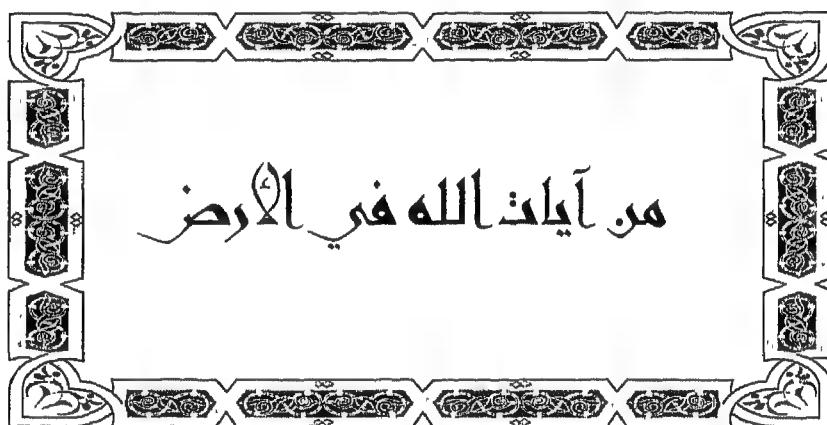 من آيات الله في الأرض